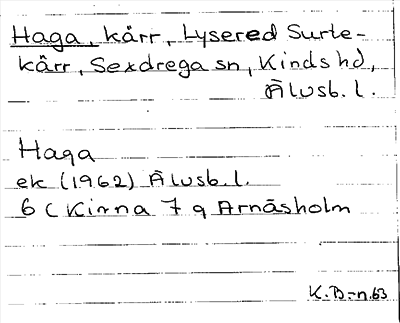 Haga, kärr, Lysered Surte-
kärr, Sexdrega sn, Kinds hd,
Älvsb. l.
Haga
ek (1962) Älvsb. l.
6 C Kinna 7 g Arnäsholm
K.B-n.63